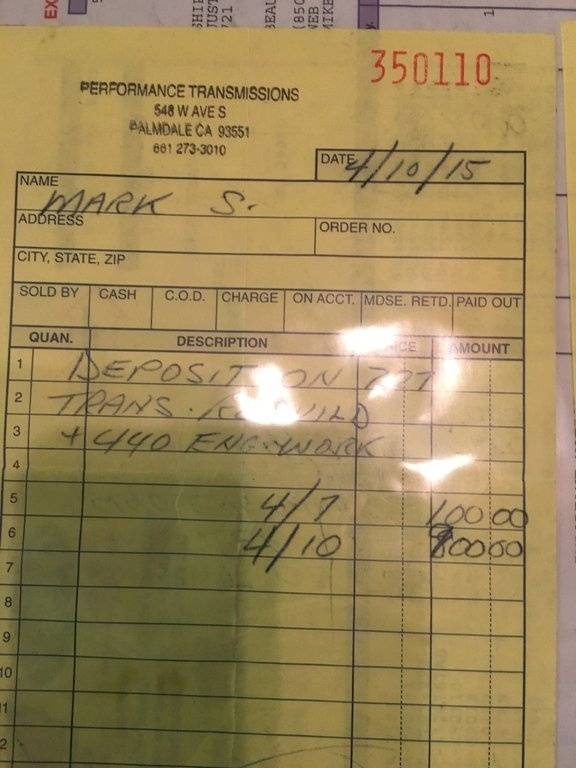 350110
PERFORMANCE TRANSMISSIONS
548 W AVE S
PALMDALE CA 93551
661 273-3010
DATE 4/10/15
NAME MARK S.
ADDRESS
ORDER NO.
CITY, STATE, ZIP
SOLD BY CASH C.O.D. CHARGE ON ACCT. MDSE. RETD. PAID OUT
QUAN. DESCRIPTION PRICE AMOUNT
1 DEPOSIT ON 727
2 TRANS. REBUILD
3 + 440 ENG. WORK
4
5 4/7 100 00
6 4/10 00 00
7
8
9
10
11
12